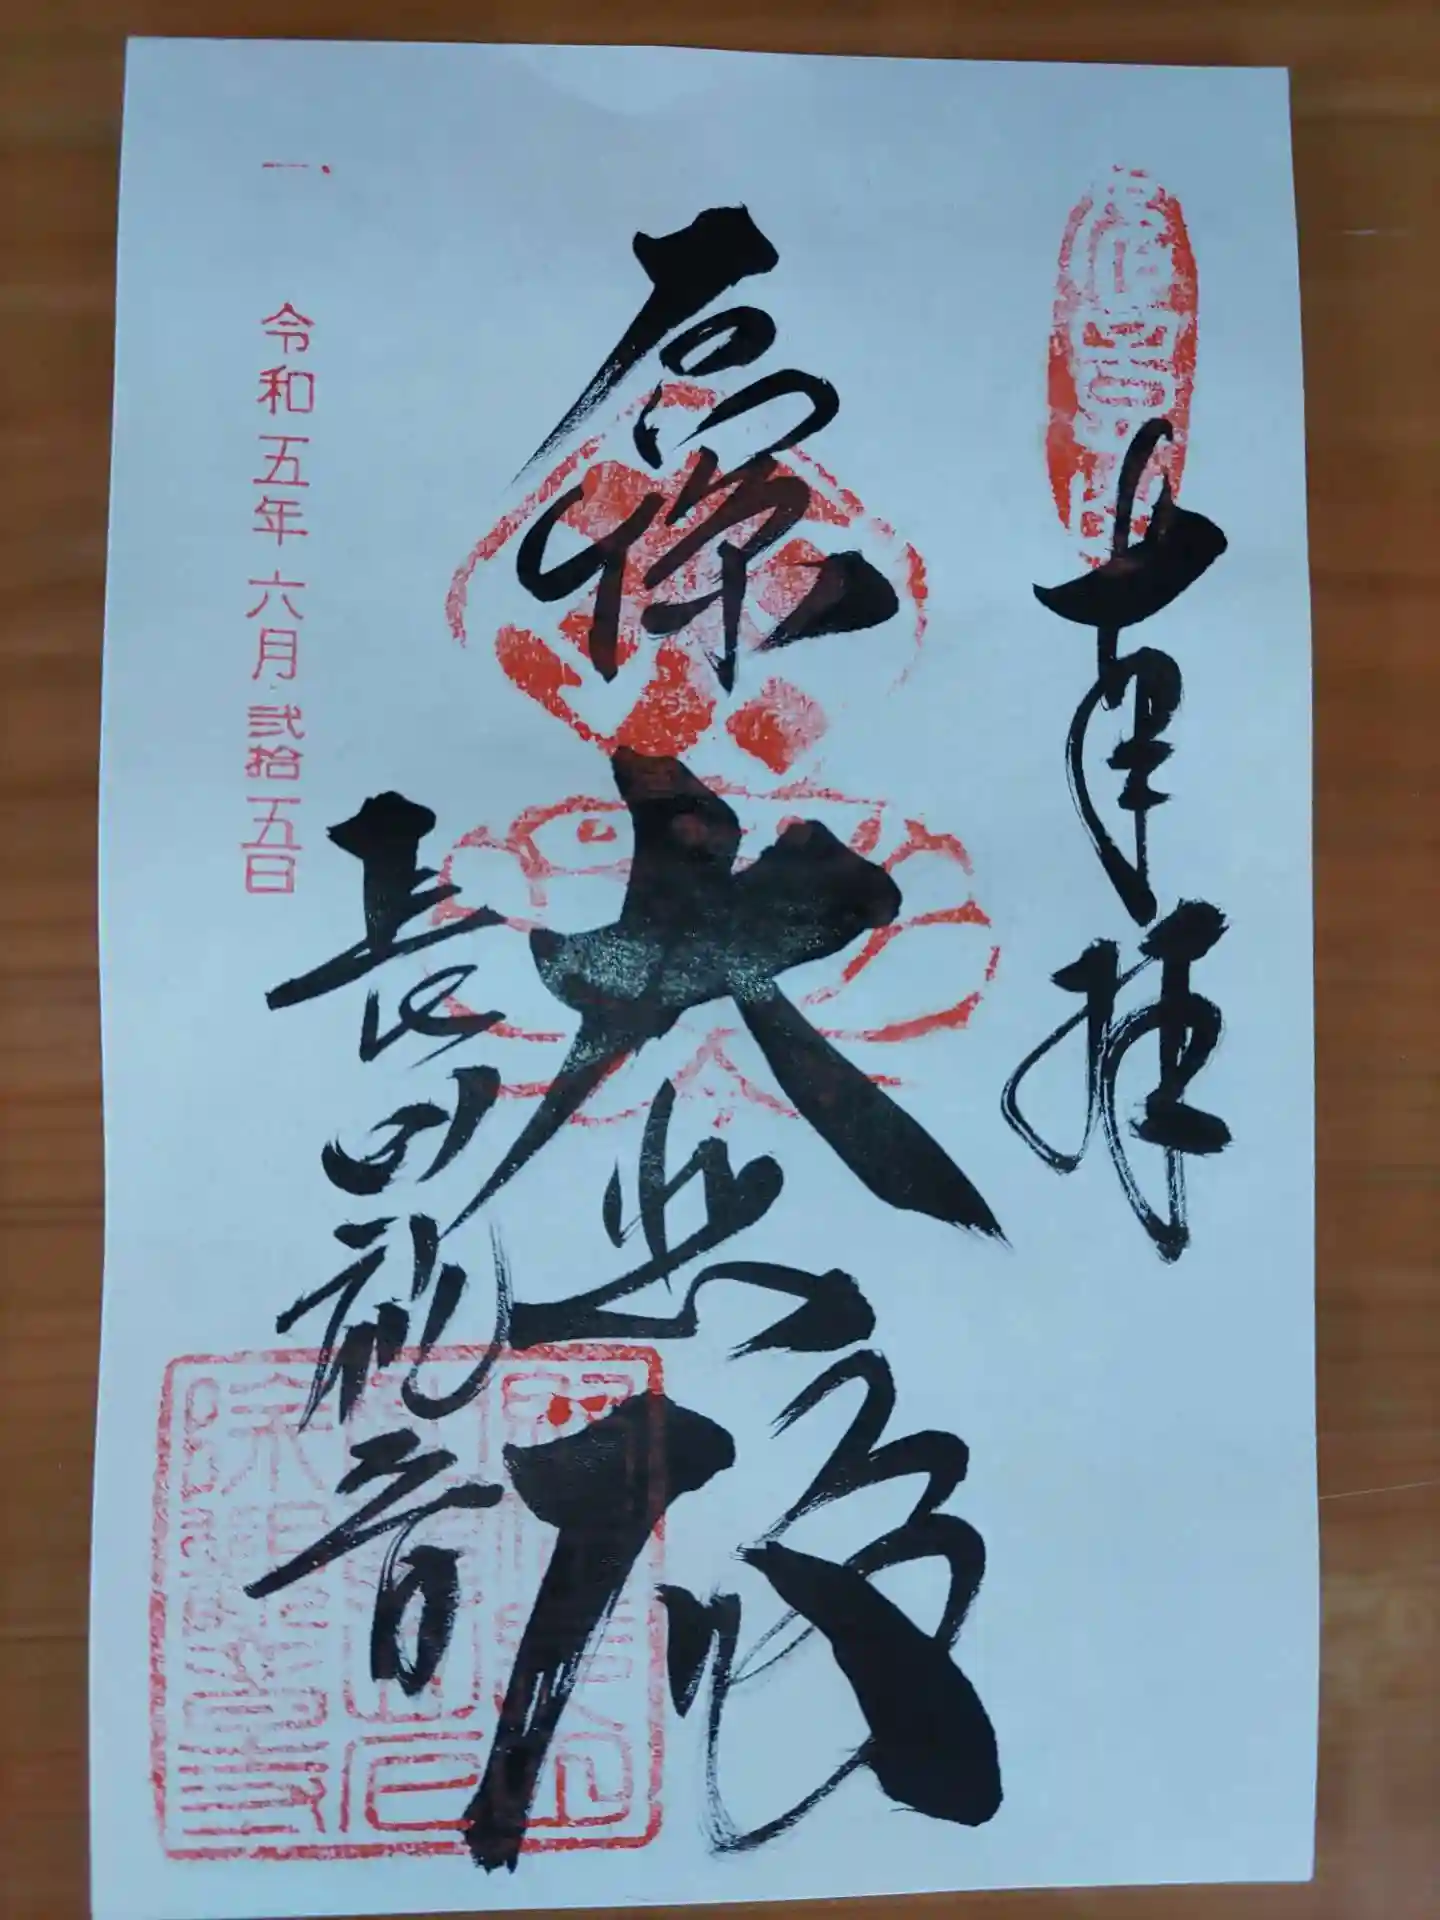 奉拝
厄除大悲殿
長田観音
一、令和五年六月弐拾五日